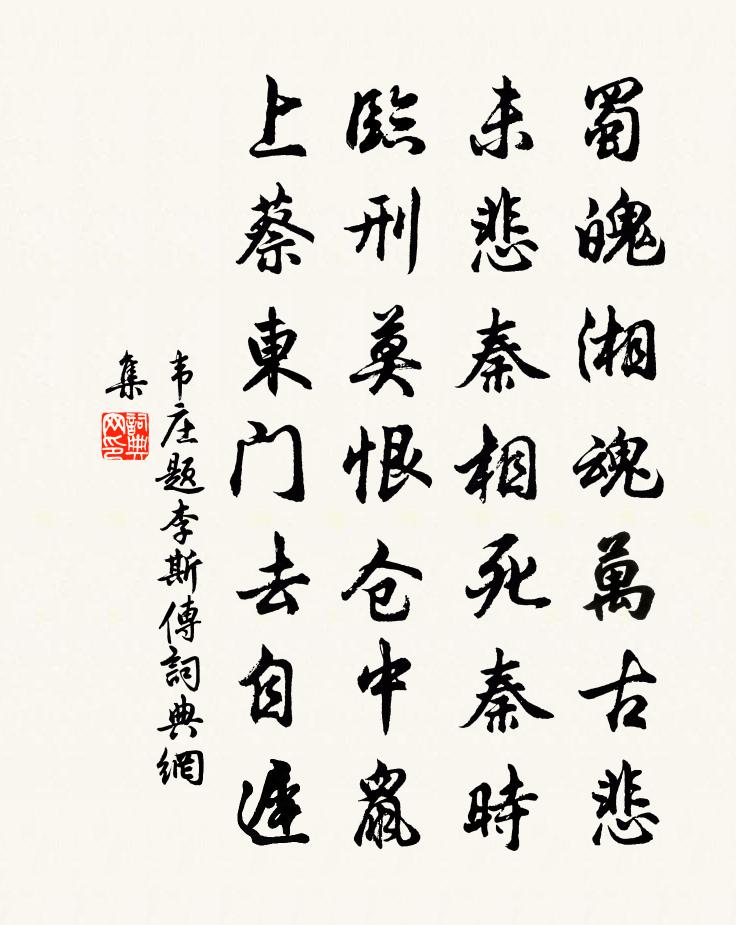 蜀魄湘魂萬古悲
未悲秦相死秦時
臨刑莫恨仓中鼠
上蔡東门去自遲
韦庄题李斯傳詞典網
集
詞典
网印